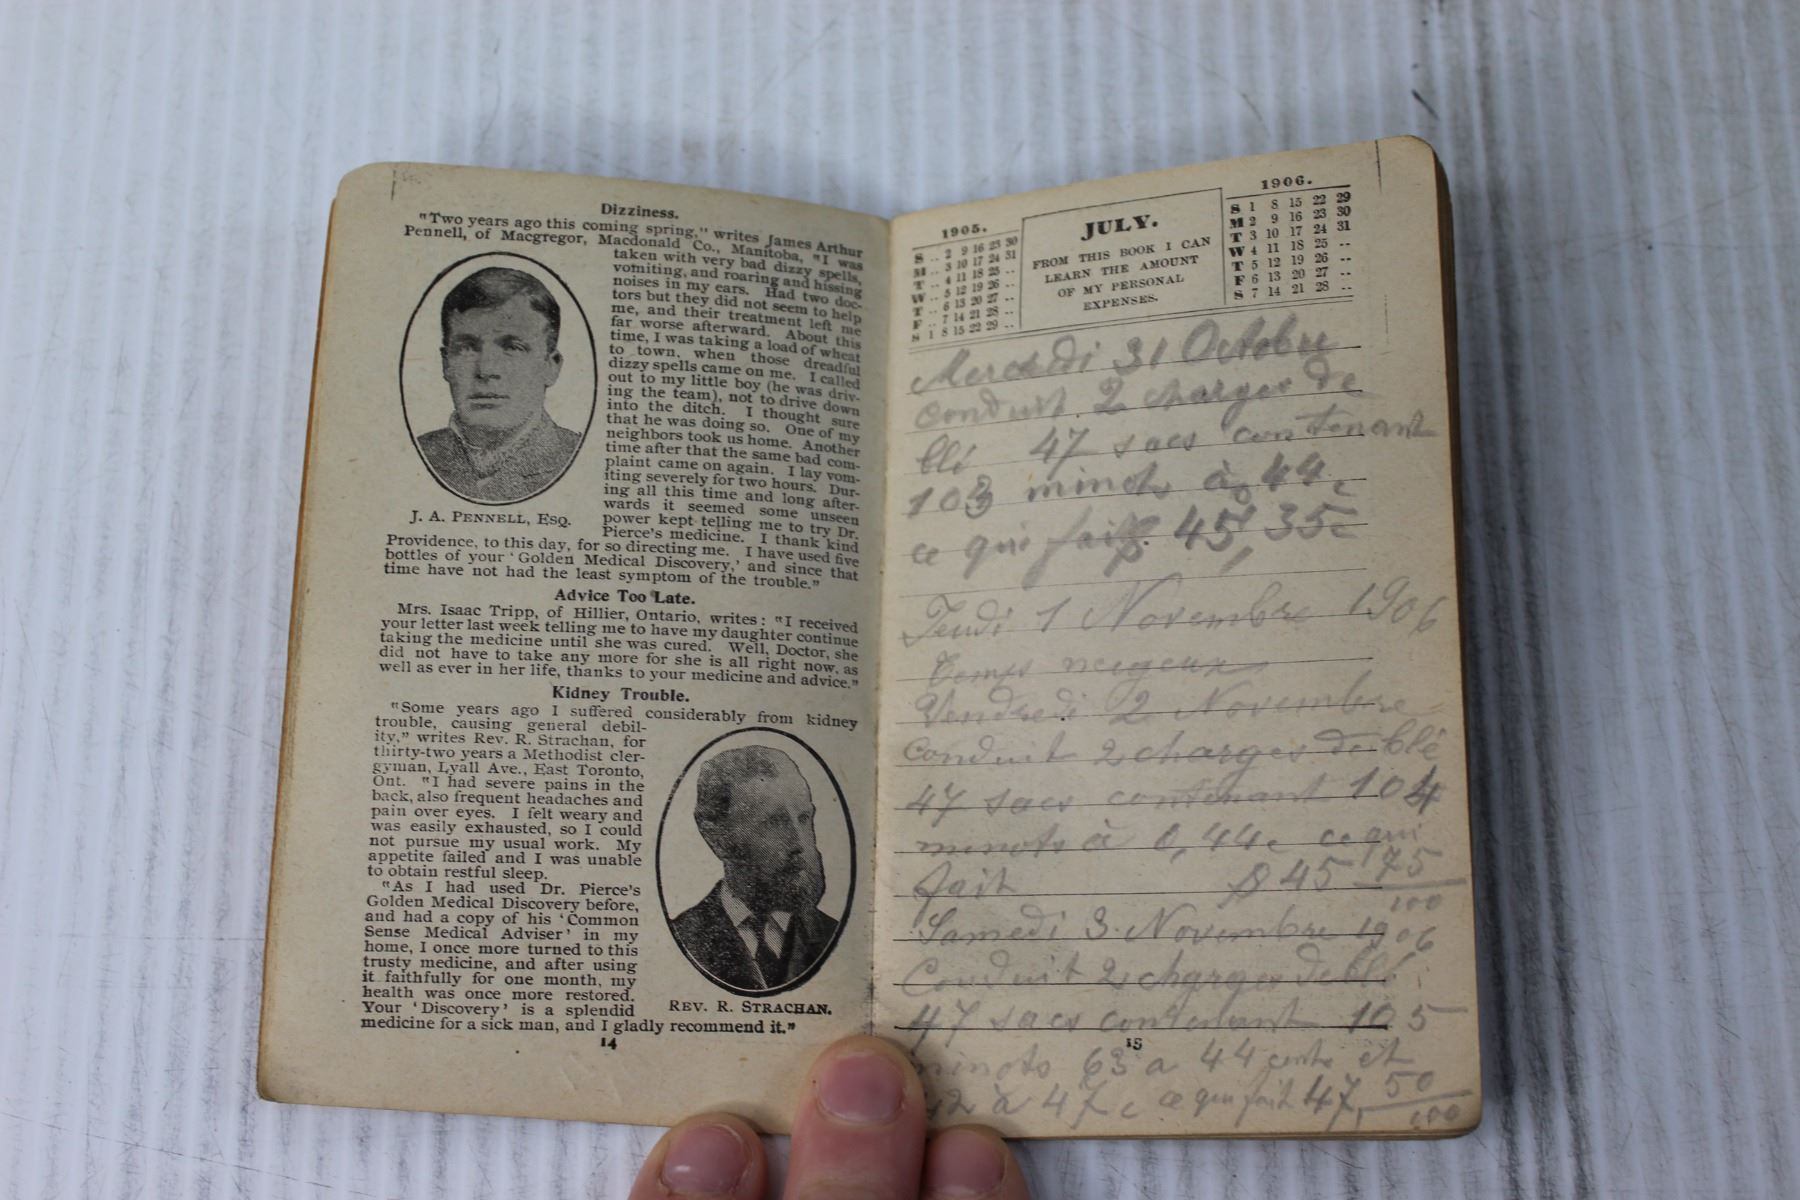 Dizziness.
"Two years ago this coming spring," writes James Arthur
Pennell, of Macgregor, Macdonald Co., Manitoba, "I was
taken with very bad dizzy spells,
vomiting, and roaring and hissing
noises in my ears. Had two doc-
tors but they did not seem to help
me, and their treatment left me
far worse afterward. About this
time, I was taking a load of wheat
to town, when those dreadful
dizzy spells came on me. I called
out to my little boy (he was driv-
ing the team), not to drive down
into the ditch. I thought sure
that he was doing so. One of my
neighbors took us home. Another
time after that the same bad com-
plaint came on again. I lay vom-
iting severely for two hours. Dur-
ing all this time and long after-
wards it seemed some unseen
power kept telling me to try Dr.
Pierce's medicine. I thank kind
J. A. PENNELL, ESQ.
Providence, to this day, for so directing me. I have used five
bottles of your 'Golden Medical Discovery,' and since that
time have not had the least symptom of the trouble."
Advice Too Late.
Mrs. Isaac Tripp, of Hillier, Ontario, writes: "I received
your letter last week telling me to have my daughter continue
taking the medicine until she was cured. Well, Doctor, she
did not have to take any more for she is all right now, as
well as ever in her life, thanks to your medicine and advice."
Kidney Trouble.
"Some years ago I suffered considerably from kidney
trouble, causing general debil-
ity," writes Rev. R. Strachan, for
thirty-two years a Methodist cler-
gyman, Lyall Ave., East Toronto,
Ont. "I had severe pains in the
back, also frequent headaches and
pain over eyes. I felt weary and
was easily exhausted, so I could
not pursue my usual work. My
appetite failed and I was unable
to obtain restful sleep.
"As I had used Dr. Pierce's
Golden Medical Discovery before,
and had a copy of his 'Common
Sense Medical Adviser' in my
home, I once more turned to this
trusty medicine, and after using
it faithfully for one month, my
health was once more restored.
Your 'Discovery' is a splendid
REV. R. STRACHAN.
medicine for a sick man, and I gladly recommend it."
14
1905.
S .. 2 9 16 23 30
M .. 3 10 17 24 31
T .. 4 11 18 25 ..
W .. 5 12 19 26 ..
T .. 6 13 20 27 ..
F .. 7 14 21 28 ..
S 1 8 15 22 29 ..
JULY.
FROM THIS BOOK I CAN
LEARN THE AMOUNT
OF MY PERSONAL
EXPENSES.
1906.
S 1 8 15 22 29
M 2 9 16 23 30
T 3 10 17 24 31
W 4 11 18 25 ..
T 5 12 19 26 ..
F 6 13 20 27 ..
S 7 14 21 28 ..
Mercredi 31 Octobre
conduit 2 charges de
blé 47 sacs contenant
103 minots à 44c
ce qui fait $ 45,35c
Jeudi 1 Novembre 1906
temps neigeux
Vendredi 2 Novembre
conduit 2 charges de blé
47 sacs contenant 104
minots à 0,44c ce qui
fait $ 45 75/100
Samedi 3 Novembre 1906
Conduit 2 charges de blé
47 sacs contenant 105
15
minots 63 a 44 cents et
42 à 47c ce qui fait 47, 50/100